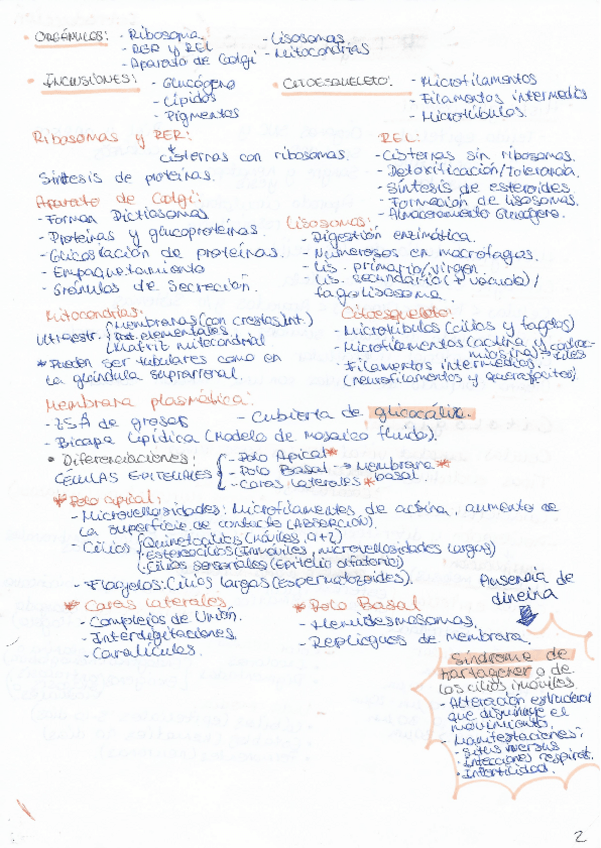 • ORGÁNULOS: - Ribosoma.
- RER y REL
- Aparato de Golgi
- Lisosomas
- Mitocondrias
• INCLUSIONES: - Glucógeno
- Lípidos
- Pigmentos
• CITOESQUELETO: - Microfilamentos
- Filamentos intermedios
- Microtúbulos.
Ribosomas y RER:
* cisternas con ribosomas.
Síntesis de proteínas.
REL:
- Cisternas sin ribosomas.
- Detoxificación/Tolerancia.
- Síntesis de esteroides
- Formación de lisosomas.
- Almacenamiento Glucógeno.
Aparato de Golgi:
- Forman Dictiosomas
- Proteínas y glucoproteínas.
- Glicosilación de proteínas.
- Empaquetamiento
- Gránulos de Secreción.
Lisosomas:
- Digestión enzimática.
- Numerosos en macrófagos.
- Lis. primario/virgen
- Lis. secundario (+ vacuola)/
fagolisosoma.
Mitocondrias:
Ultraestr. Membranas (con crestas Int.)
Part. elementales
Matriz mitocondrial
* Pueden ser tubulares como en
la glándula suprarrenal.
Citoesqueleto:
- Microtúbulos (cilios y flagelos)
- Microfilamentos (actina y miosina) → contráctiles
- Filamentos intermedios.
(neurofilamentos y queratocitos)
Membrana plasmática:
- ISA de grasas
- Cubierta de glicocálix.
- Bicapa Lipídica (Modelo de mosaico fluido).
• Diferenciaciones:
CÉLULAS EPITELIALES
- Polo Apical*
- Polo Basal → Membrana basal *
- Caras laterales*
* Polo apical:
- Microvellosidades: Microfilamentos de actina, aumento de
la superficie de contacto (ABSORCIÓN).
- Cilios Quinetocilios (móviles, 9+2)
• Estereocilios (Inmóviles, microvellosidades largas)
• Cilios sensoriales (Epitelio olfatorio)
- Flagelos: Cilios largos (espermatozoides).
* Caras laterales
- Complejos de Unión.
- Interdigitaciones.
- Canalículos.
* Polo Basal
- Hemidesmosomas.
- Repliegues de membrana.
Ausencia de
dineina
Síndrome de
Kartagener o de
los cilios inmóviles
- Alteración estructural
que disminuye el
movimiento.
- Manifestaciones:
• Situs inversus
• Infecciones respirat.
• Infertilidad.
2